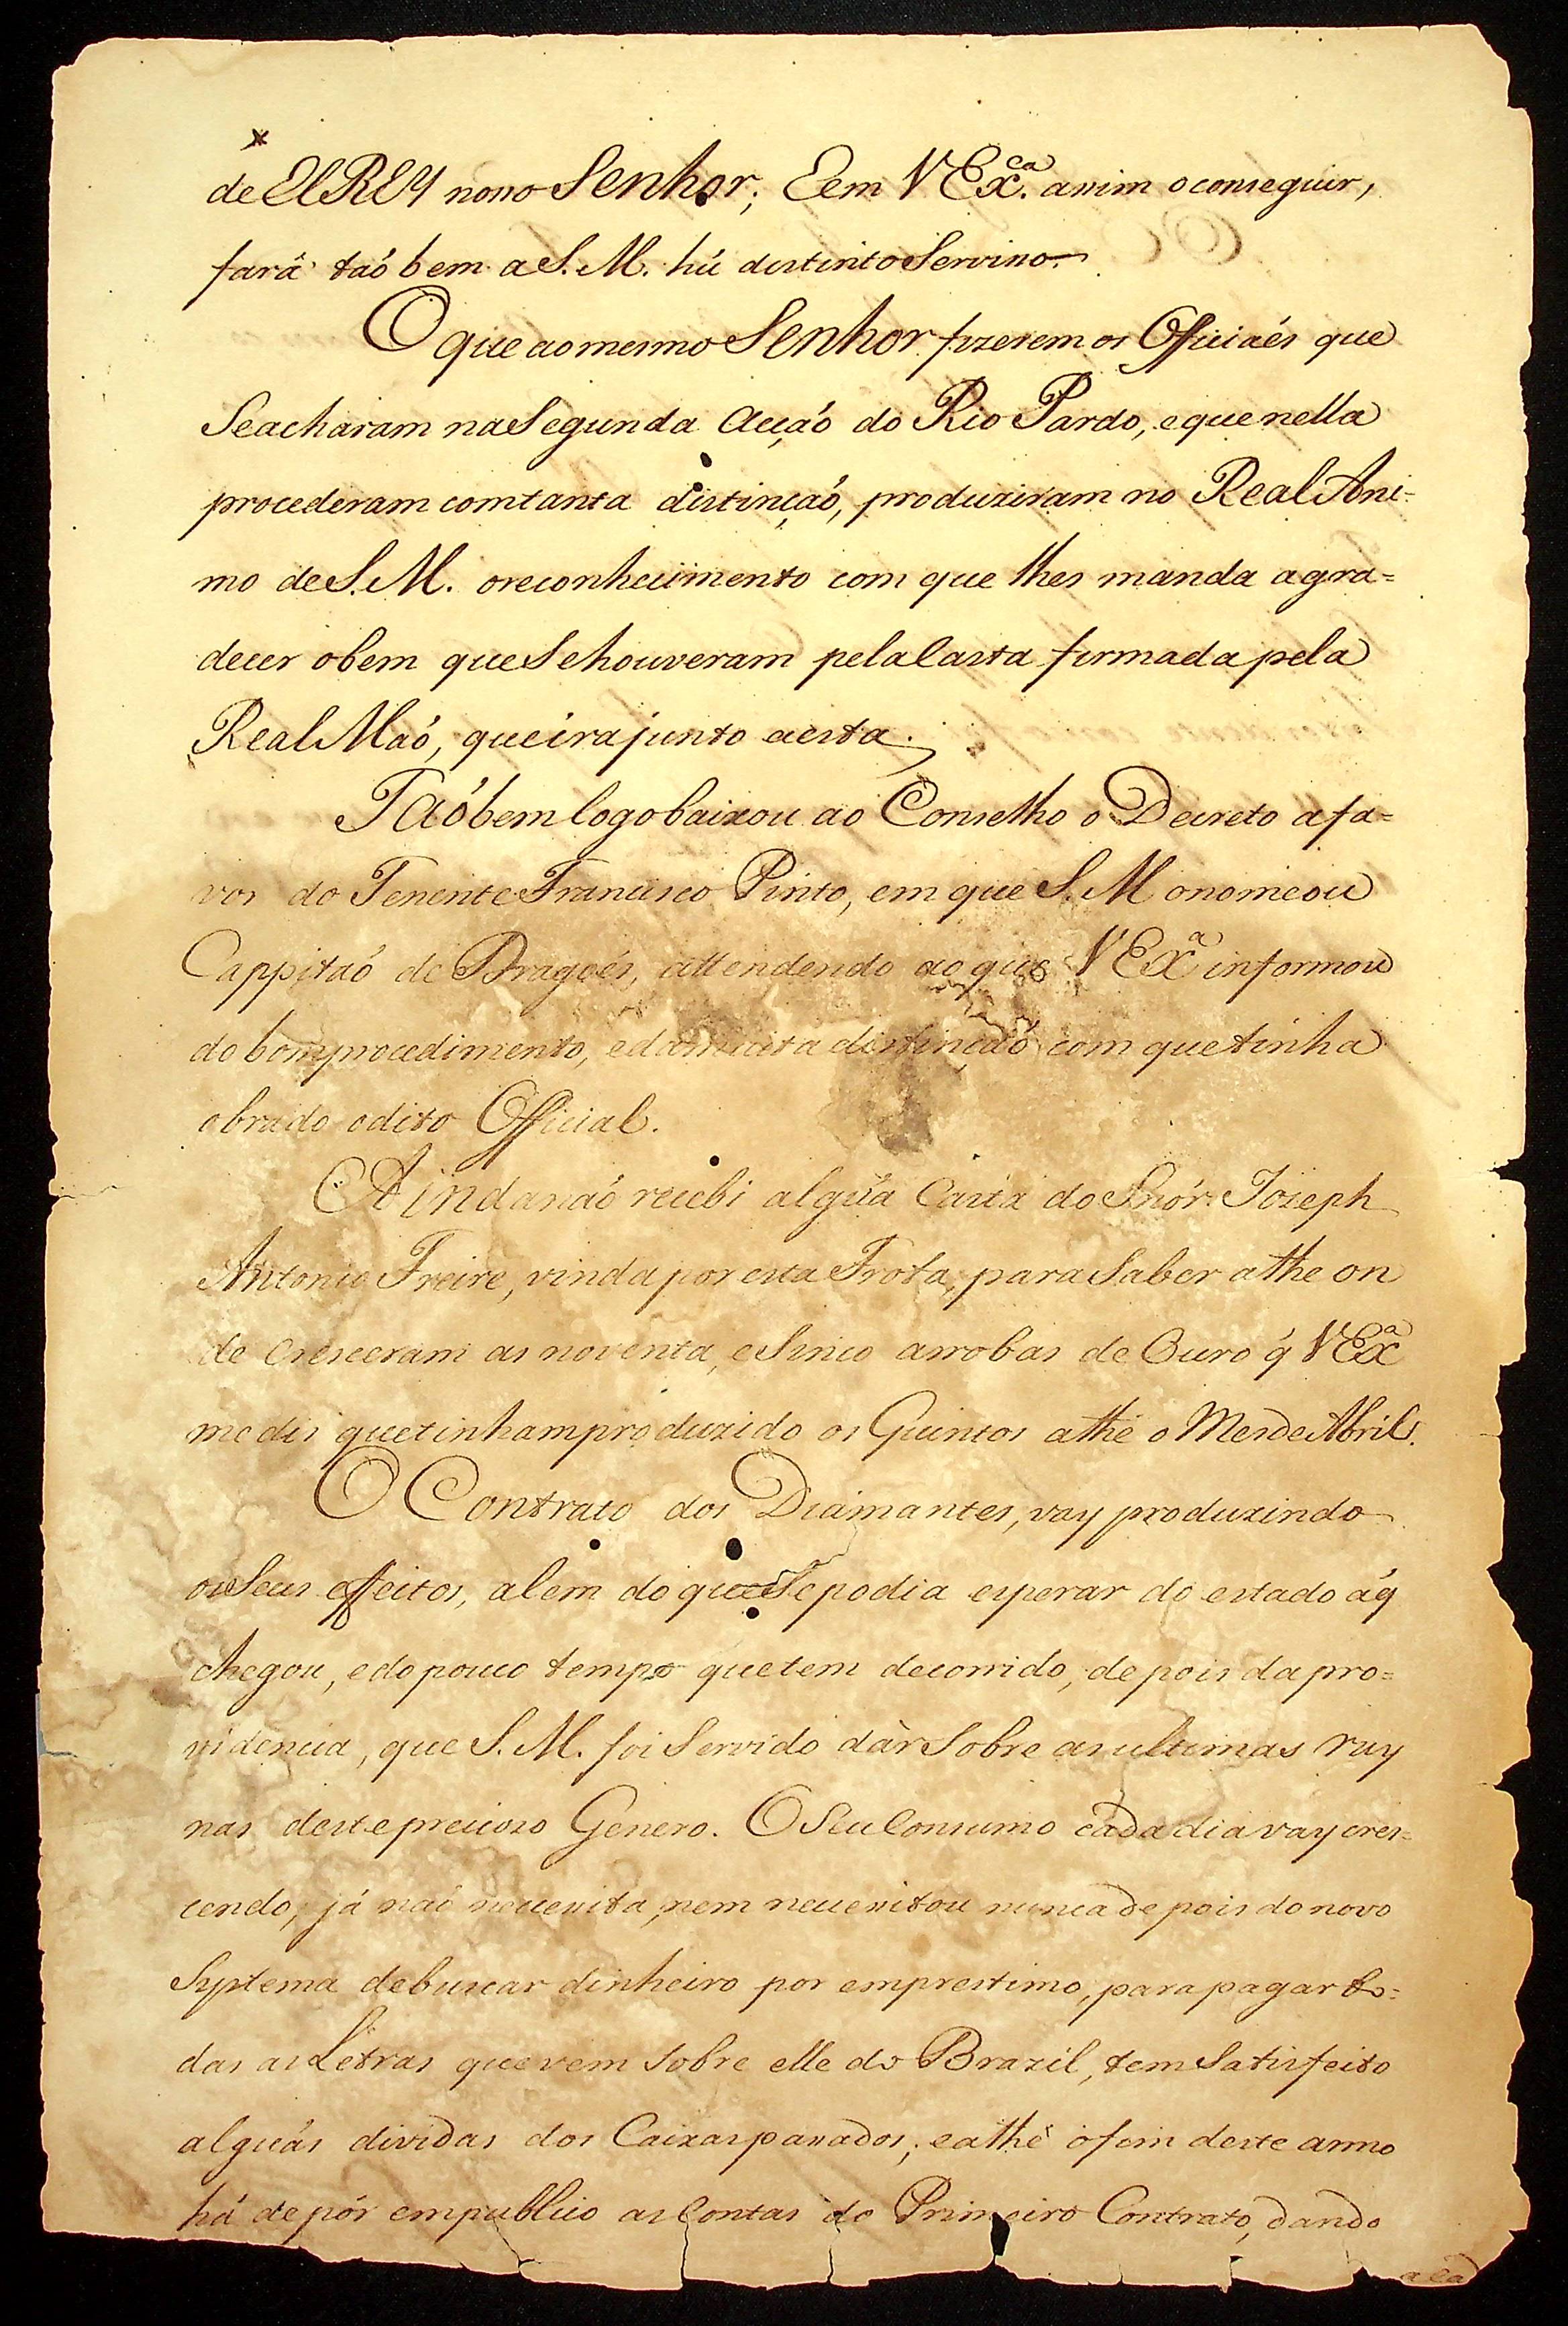 de ElREY nosso Senhor; E em V Ex.ca assim o conseguir,
fará taó bem a S. M. hú distinto Servisso.
O que ao mesmo Senhor fizerem os Officiaés que
Se acharam na Segunda Acçaó do Rio Pardo, e que nella
procederam com tanta distinçaó, produziram no Real Ani=
mo de S. M. o reconhecimento com que lhes manda agra=
decer o bem que Se houveram pela Carta firmada pela
Real Maó, que irá junto a esta.
Taó bem logo baixou ao Conselho o Decreto a fa=
vor do Tenente Francisco Pinto, em que S. M o nomeou
Cappitaó de Dragoés, attendendo ao que V Ex.a informou
do bom procedimento, e da muita distinçaó com que tinha
obrado o dito Official.
Ainda naó recebi algúa Carta do Snór. Joseph
Antonio Freire, vinda por esta Frota, para Saber athe on
de cresceram as noventa, e Sinco arrobas de Ouro q́ V Ex.a
me dis que tinham produzido os Quintos athé o Mes de Abril.
O Contrato dos Diamantes, vay produzindo
os Seus effeitos, alem do que Se podia esperar do estado á q́
chegou, e do pouco tempo que tem decorrido, depois da pro=
videncia, que S. M. foi Servido dàr Sobre as ultimas ruy
nas deste preciozo Genero. O Seu Consumo cada dia vay cres=
cendo, já naó necessita, nem necessitou nunca depois do novo
Systema de buscar dinheiro por emprestimo, para pagar to=
das as Letras que vem Sobre elle do Brazil, tem Satisfeito
alguás dividas dos Caixas passados; e athé o fim deste anno
há de pór em publico as Contas do Primeiro Contrato, dando